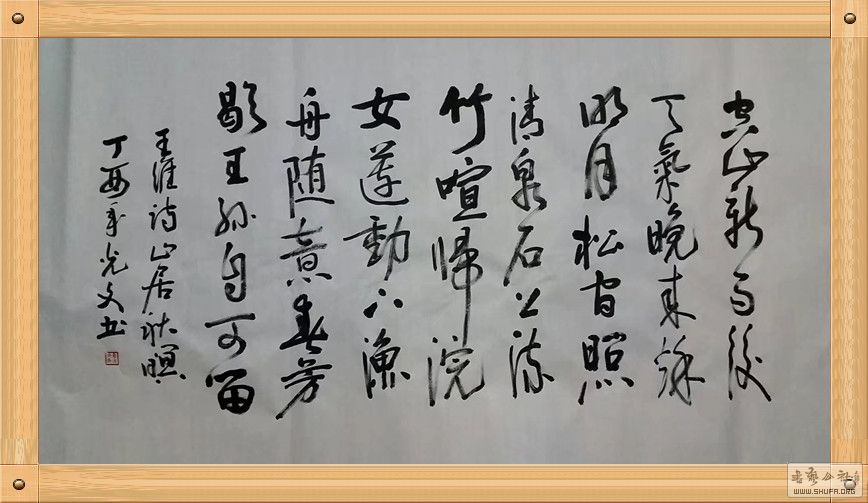 空山新雨後
天氣晚來秋
明月松间照
清泉石上流
竹喧歸浣
女莲動下漁
舟随意春芳
歇王孫自可留
王维诗山居秋暝
丁酉年光文书
WWW.SHUFA.ORG